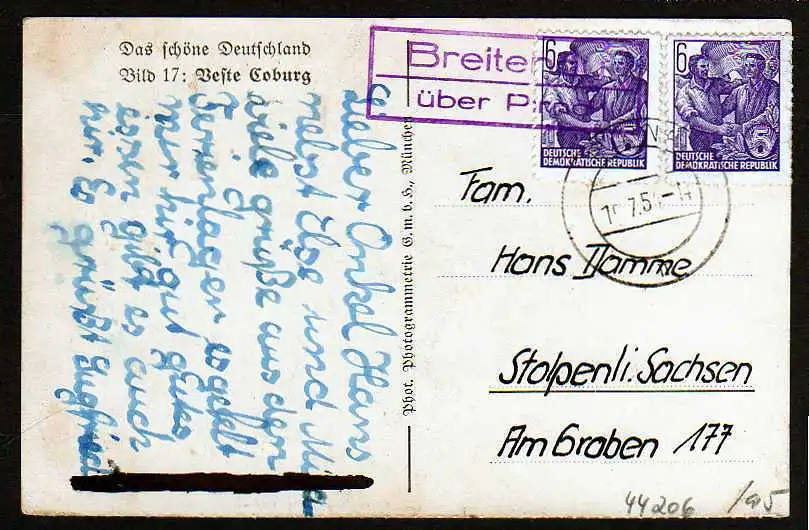 Das schöne Deutschland
Bild 17: Veste Coburg
Lieber Onkel Hans
nebst Ilse und
viele grüße aus den
Ferienlagen es gefelt
mir hir gut gutes
essen gibt es auch
hir. Es grüßt Sigfried
Phot. Photogrammetrie G.m.b.H., München
Breiten
über P
6
DEUTSCHE
DEMOKRATISCHE REPUBLIK
6
5
DEUTSCHE
DEMOKRATISCHE REPUBLIK
Fam.
Hans Damme
Stolpen i. Sachsen
Am Graben 177
44206 /95